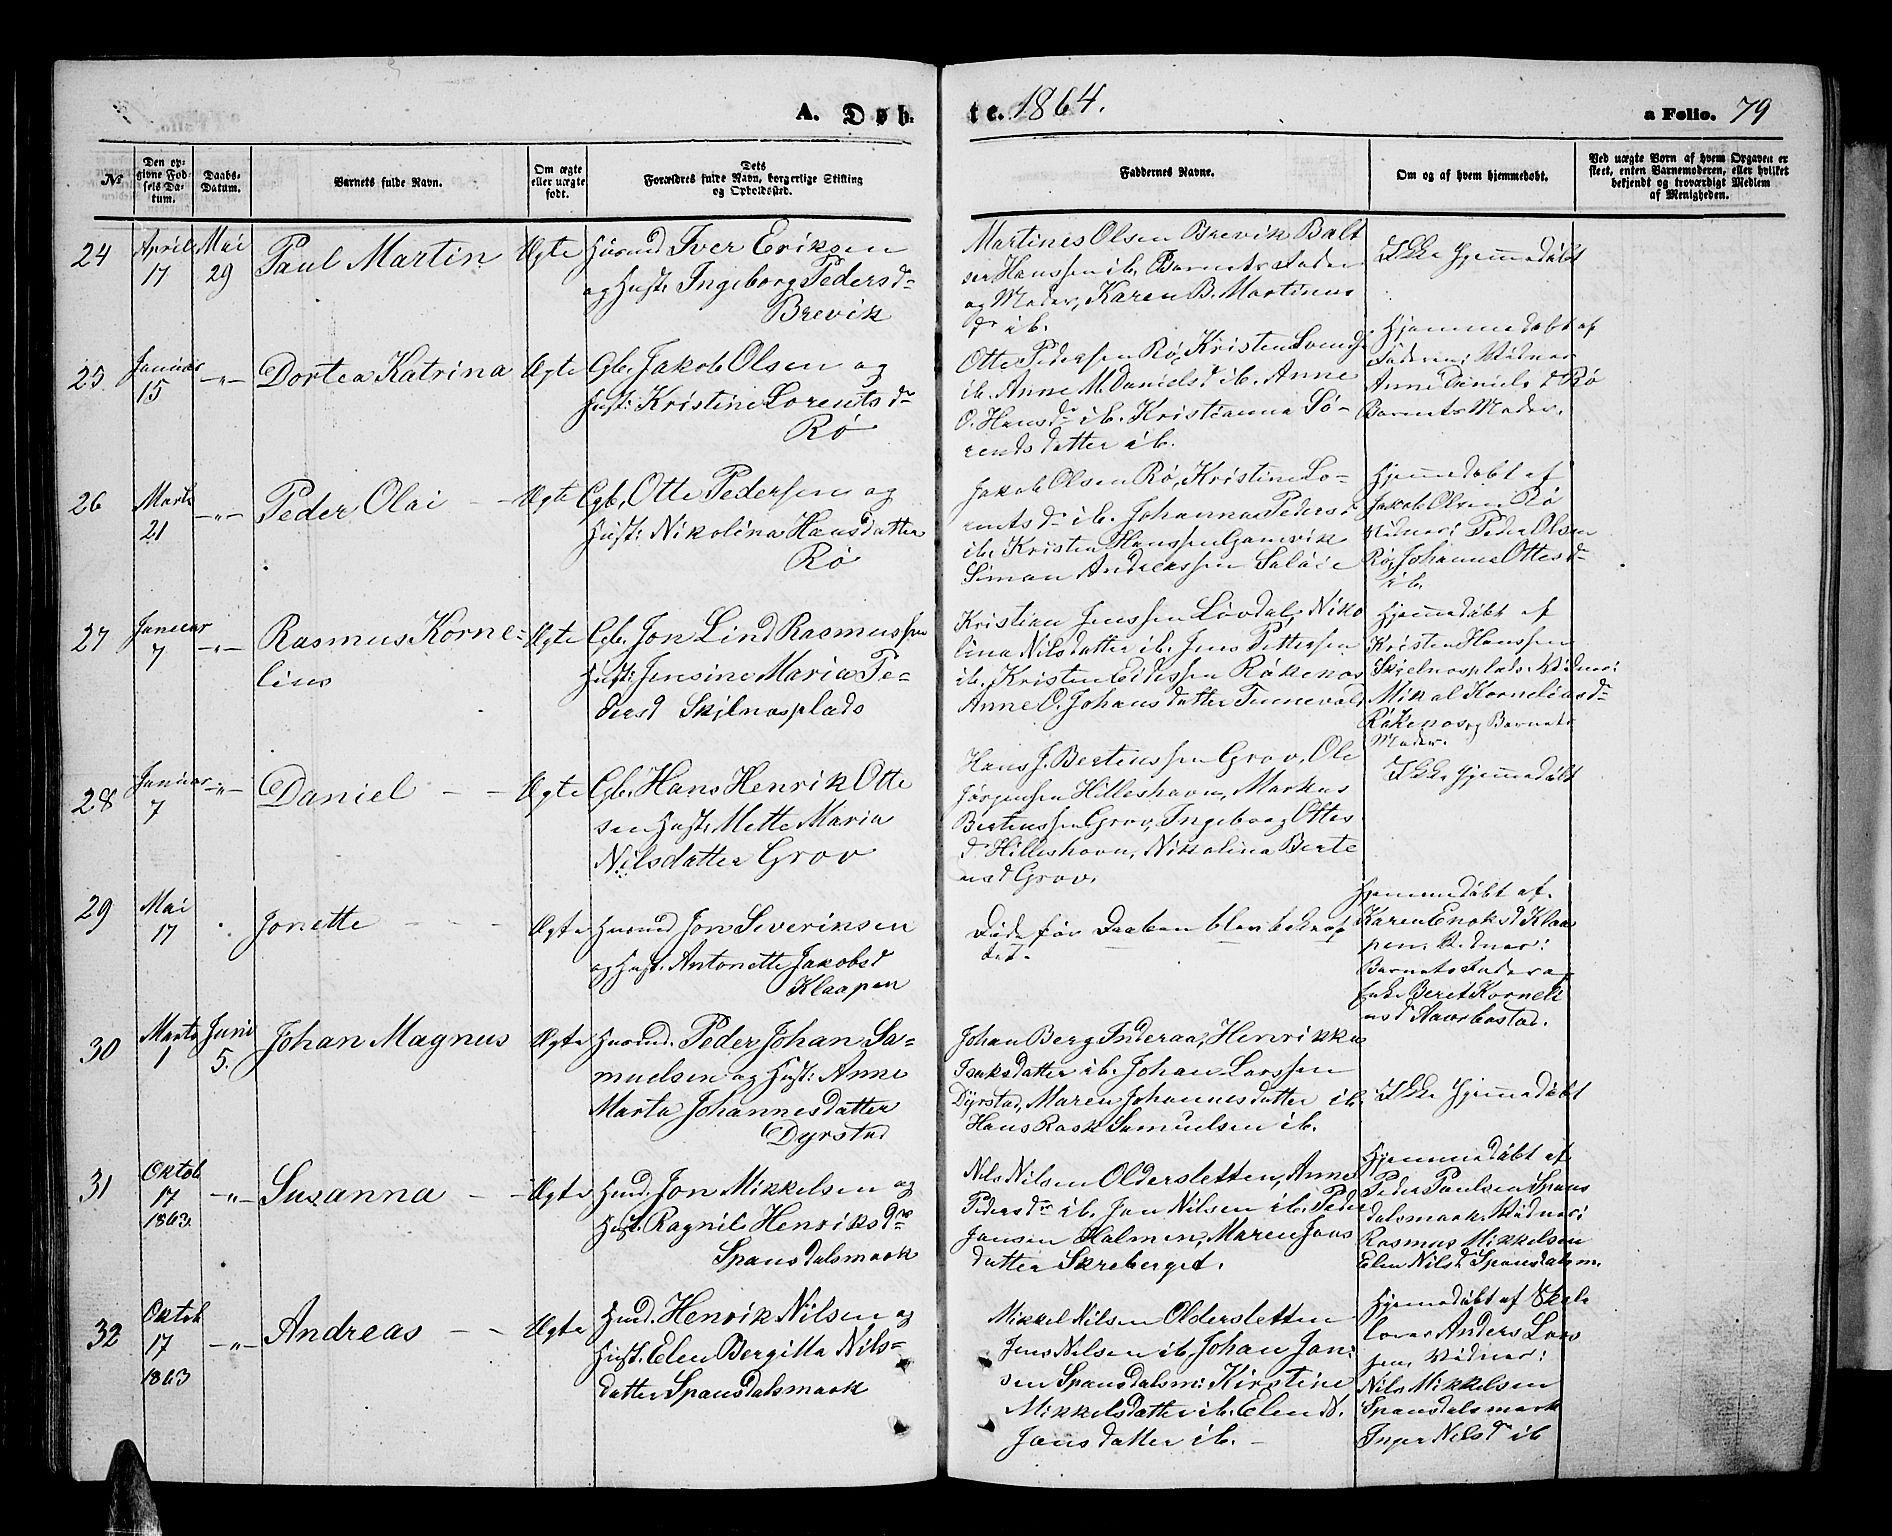 A. Døb
te. 1864.
a Folio. 79
№
Den opgivne Fødsels Datum.
Daabs-Datum.
Barnets fulde Navn.
Om ægte eller uægte født.
Dets Forældres fulde Navn, borgerlige Stilling og Opholdssted.
Faddernes Navne.
Om og af hvem hjemmedøbt.
Ved uægte Børn af hvem Opgaven er skeet, enten Barnemoderen, eller hvilket bekjendt og troværdigt Medlem af Menigheden.
24
April 17
Mai 29
Paul Martin
Ægte
Huusmd Iver Eriksen
og Hust: Ingeborg Pedersdr
Brevik
Martines Olsen Brevik Balt
ser Hanssen ib. Barnets Fader
og Moder, Karen B. Martinus
dr ib.
Ikke hjemmedøbt
25.
Januar 15
-"-
Dortea Katrina
Ægte
Gb. Jakob Olsen og
Hust: Kristine Lorentsdr
Rø
Otte Pedersen Rø, Kristen
ib. Anne M. Danielsd ib. Anne
O. Hansdr ib. Kristianna Sø-
rensdatter ib.
Hjemmedøbt af
Faderen: Vidner
Anne Daniels d Rø
Barnets Moder.
26
Marts 21
-"-
Peder Olai
Ægte
Gb. Otte Pedersen og
Hust: Nikolina Hansdatter
Rø
Jakob Olsen Rø, Kristine Lo-
rentsdr ib. Johanna Pedersd
ib. Kristen Hanssen Gamvik
Simon Andreassen
Hjemmedøbt af
Jakob Olsen Rø
Vidner: Peder Olsen
Rø, Johanna Ottesdr
ib.
27
Januar 7
-"-
Rasmus Korne-
lius
Ægte
Gb. Jon Lind Rasmussen
Hust: Jensine Maria Pe-
dersd Skjelnesplads
Kristian Jenssen Løvdal, Niko
lina Nilsdatter ib. Jens Pettersen
ib. Kristen Edissen Røkenes
Anne C. Johansdatter
Hjemmedøbt af
Kristen Hanssen
Skjelnesplads. Vidner:
Mikal Korneliusdr
Røkenes og Barnets
Moder.
28
Januar 7
-"-
Daniel
Ægte
Gb. Hans Henrik Otte
sen Hust: Mette Maria
Nilsdatter Grov
Hans J. Bertenssen Grov, Ole
Jørgensen Hilleshavn, Markus
Bertenssen Grov, Ingeborg Ottes
d Hilleshavn, Nikolina Berte
nsd Grov.
Ikke hjemmedøbt
29
Mai 17
Jonette
Ægte
Huusmd Jon Severinsen
og Hust. Antonette Jakobsd
Klaapen
Døde før Daaben blev bekræf
tet.
Hjemmedøbt af
Karen Enoksd Klaa
pen. Vidner:
Barnets Fader og
Enke Beret Korneli
usd Aaarbostad.
30
Marts 1
Juni 5.
Johan Magnus
Ægte
Huusmd. Peder Johan Sa-
muelsen og Hust: Anne
Marta Johannesdatter
Dyrstad
Johan Berg Inderaa, Henrikka
Isaksdatter ib. Johan Larssen
Dyrstad, Maren Johannesdatter ib.
Hans Rask Samuelsen ib.
Ikke hjemmedøbt
31
Oktob 17 1863
-"-
Susanna
Ægte
Huusmd. Jon Mikkelsen og
Hust. Ragnil Henriksdr
Spansdalsmark
Nils Nilsen Oldersletten, Anne
Pedersdr ib. Jon Nilsen ib. Peder
Jonsen Holmen, Maren Jons
datter Skreberget.
Hjemmedøbt af
Peder Paulsen Spans
dalsmark. Vidner:
Rasmus Mikkelsen
Elen Nilsd Spansdalsm.
32
Oktob 17 1863
-"-
Andreas
Ægte
Huusmd. Henrik Nilsen og
Hust. Elen Bergitta Nils-
datter Spansdalsmark
Mikkel Nilsen Oldersletten
Jens Nilsen ib. Johan Jon-
sen Spansdalsm: Kirstine
Mikkelsdatter ib. Elen N.
Jonsdatter ib.
Hjemmedøbt af Skole
lærer Anders Lars
sen, Vidner:
Nils Mikkelsen
Spansdalsmark
Inger Nilsdr ib